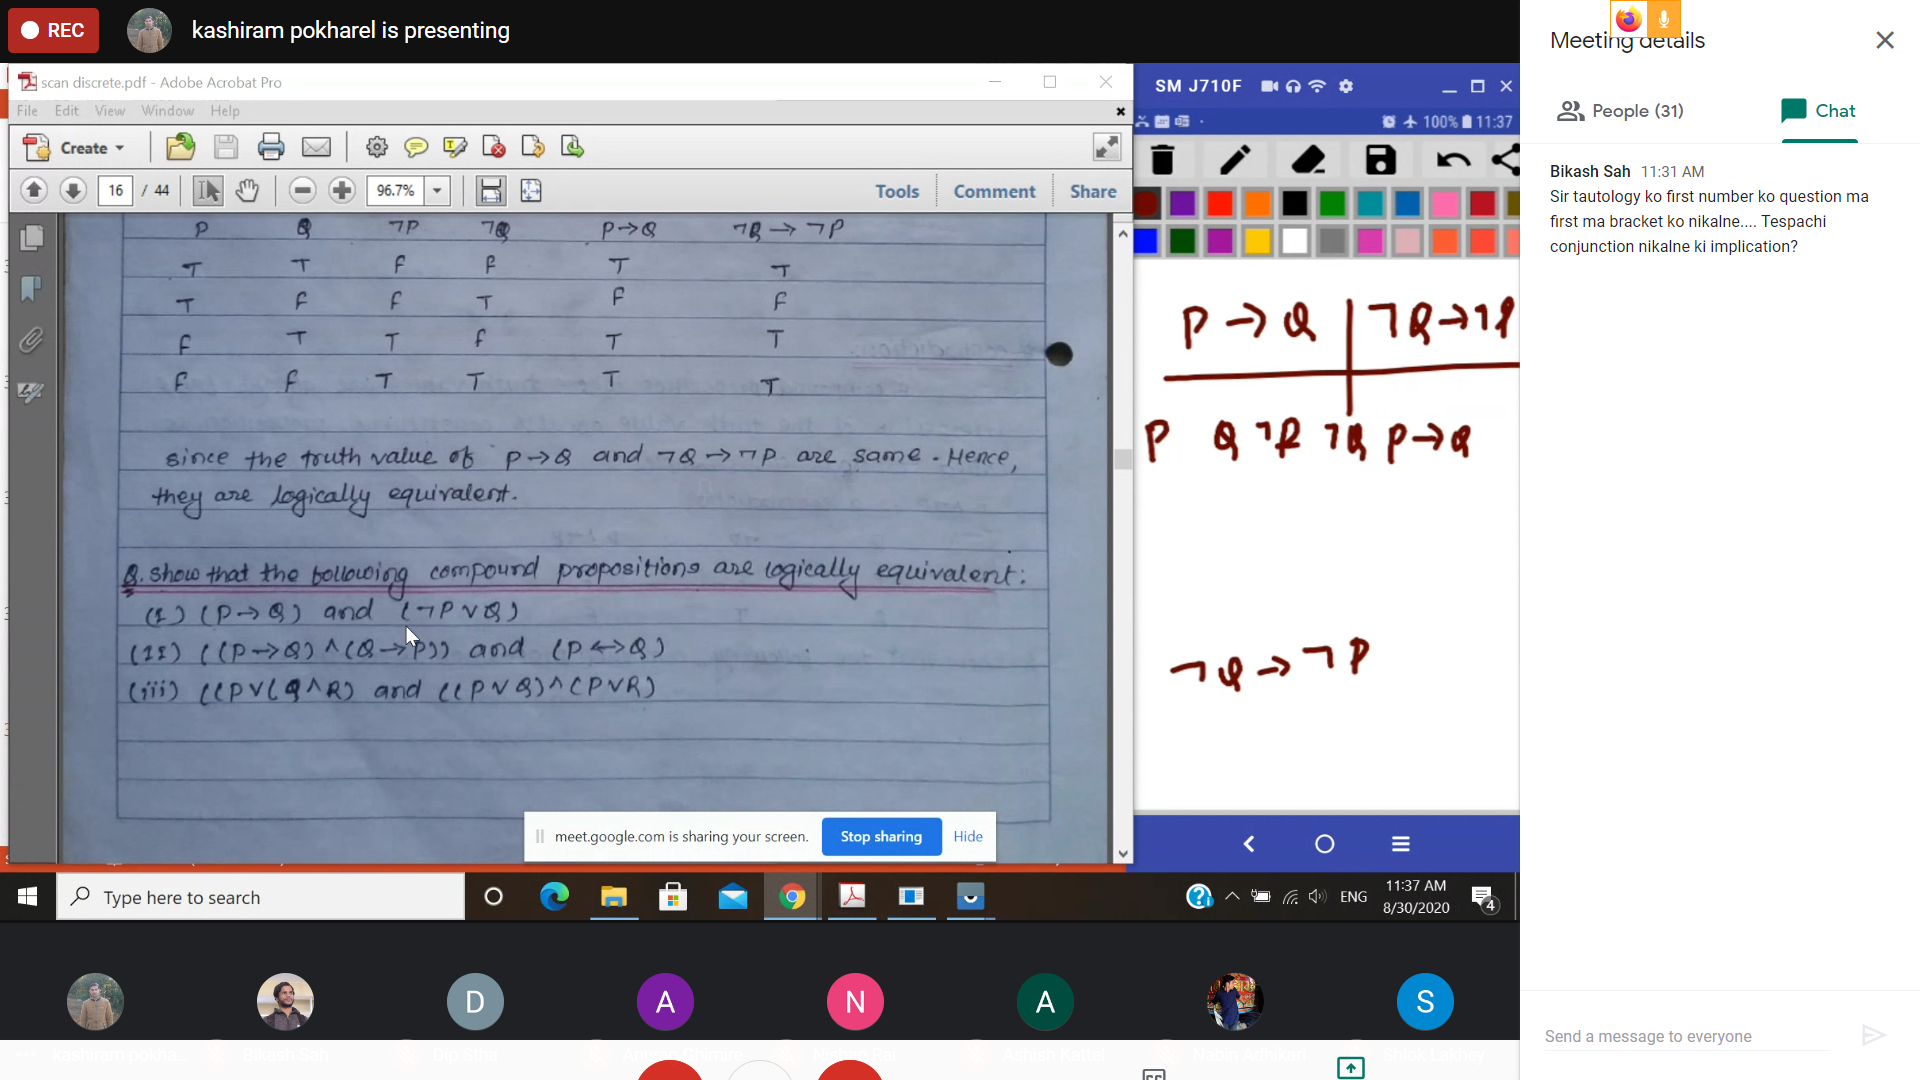 REC
kashiram pokharel is presenting
scan discrete.pdf - Adobe Acrobat Pro
File Edit View Window Help
Create
16 / 44
96.7%
Tools Comment Share
P Q ¬P ¬Q P→Q ¬Q → ¬P
T T F F T T
T F F T F F
F T T F T T
F F T T T T
since the truth value of P→Q and ¬Q→¬P are same. Hence,
they are logically equivalent.
Q. Show that the following compound propositions are logically equivalent:
(I) (P→Q) and (¬P∨Q)
(II) ((P→Q)∧(Q→P)) and (P↔Q)
(iii) ((P∨(Q∧R) and ((P∨Q)∧(P∨R)
meet.google.com is sharing your screen. Stop sharing Hide
SM J710F
100% 11:37
P → Q | ¬Q→¬P
P Q ¬P ¬Q P→Q
¬Q → ¬P
Type here to search
ENG
11:37 AM
8/30/2020
4
Meeting details
People (31)
Chat
Bikash Sah 11:31 AM
Sir tautology ko first number ko question ma
first ma bracket ko nikalne.... Tespachi
conjunction nikalne ki implication?
Send a message to everyone
D A N A S
kashiram pokha...
Bikash Sah